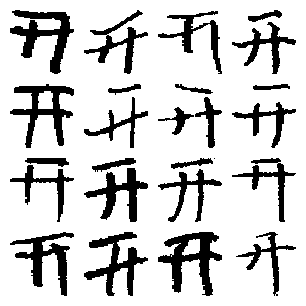 开开开开
开开开开
开开开开
开开开开